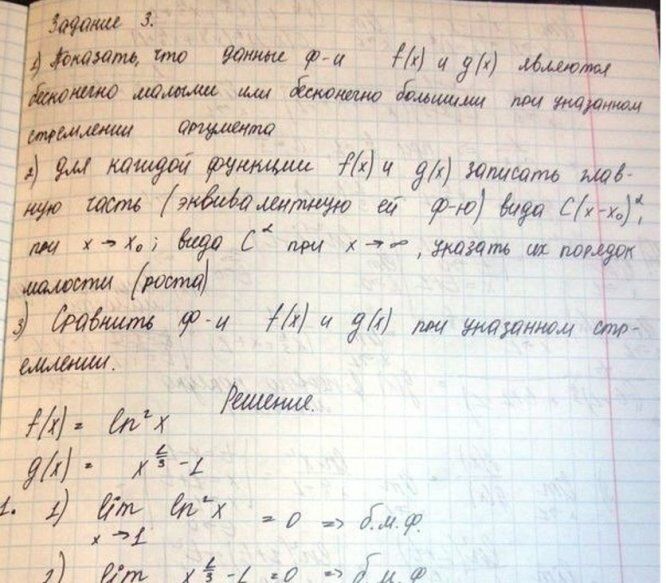 Задание 3.
1) Показать, что данные ф-и f(x) и g(x) являются
бесконечно малыми или бесконечно большими при указанном
стремлении аргумента
2) Для каждой функции f(x) и g(x) записать глав-
ную часть (эквивалентную ей ф-ю) вида C(x-x₀)^α,
при x→x₀; вида C^α при x→∞, указать их порядок
малости (роста)
3) Сравнить ф-и f(x) и g(x) при указанном стр-
емлении.
Решение.
f(x) = ln²x
g(x) = x^(1/3) - 1
1. 1) lim ln²x = 0 => б.м.ф.
x→1
2) lim x^(1/3) - 1 = 0 => б.м.ф